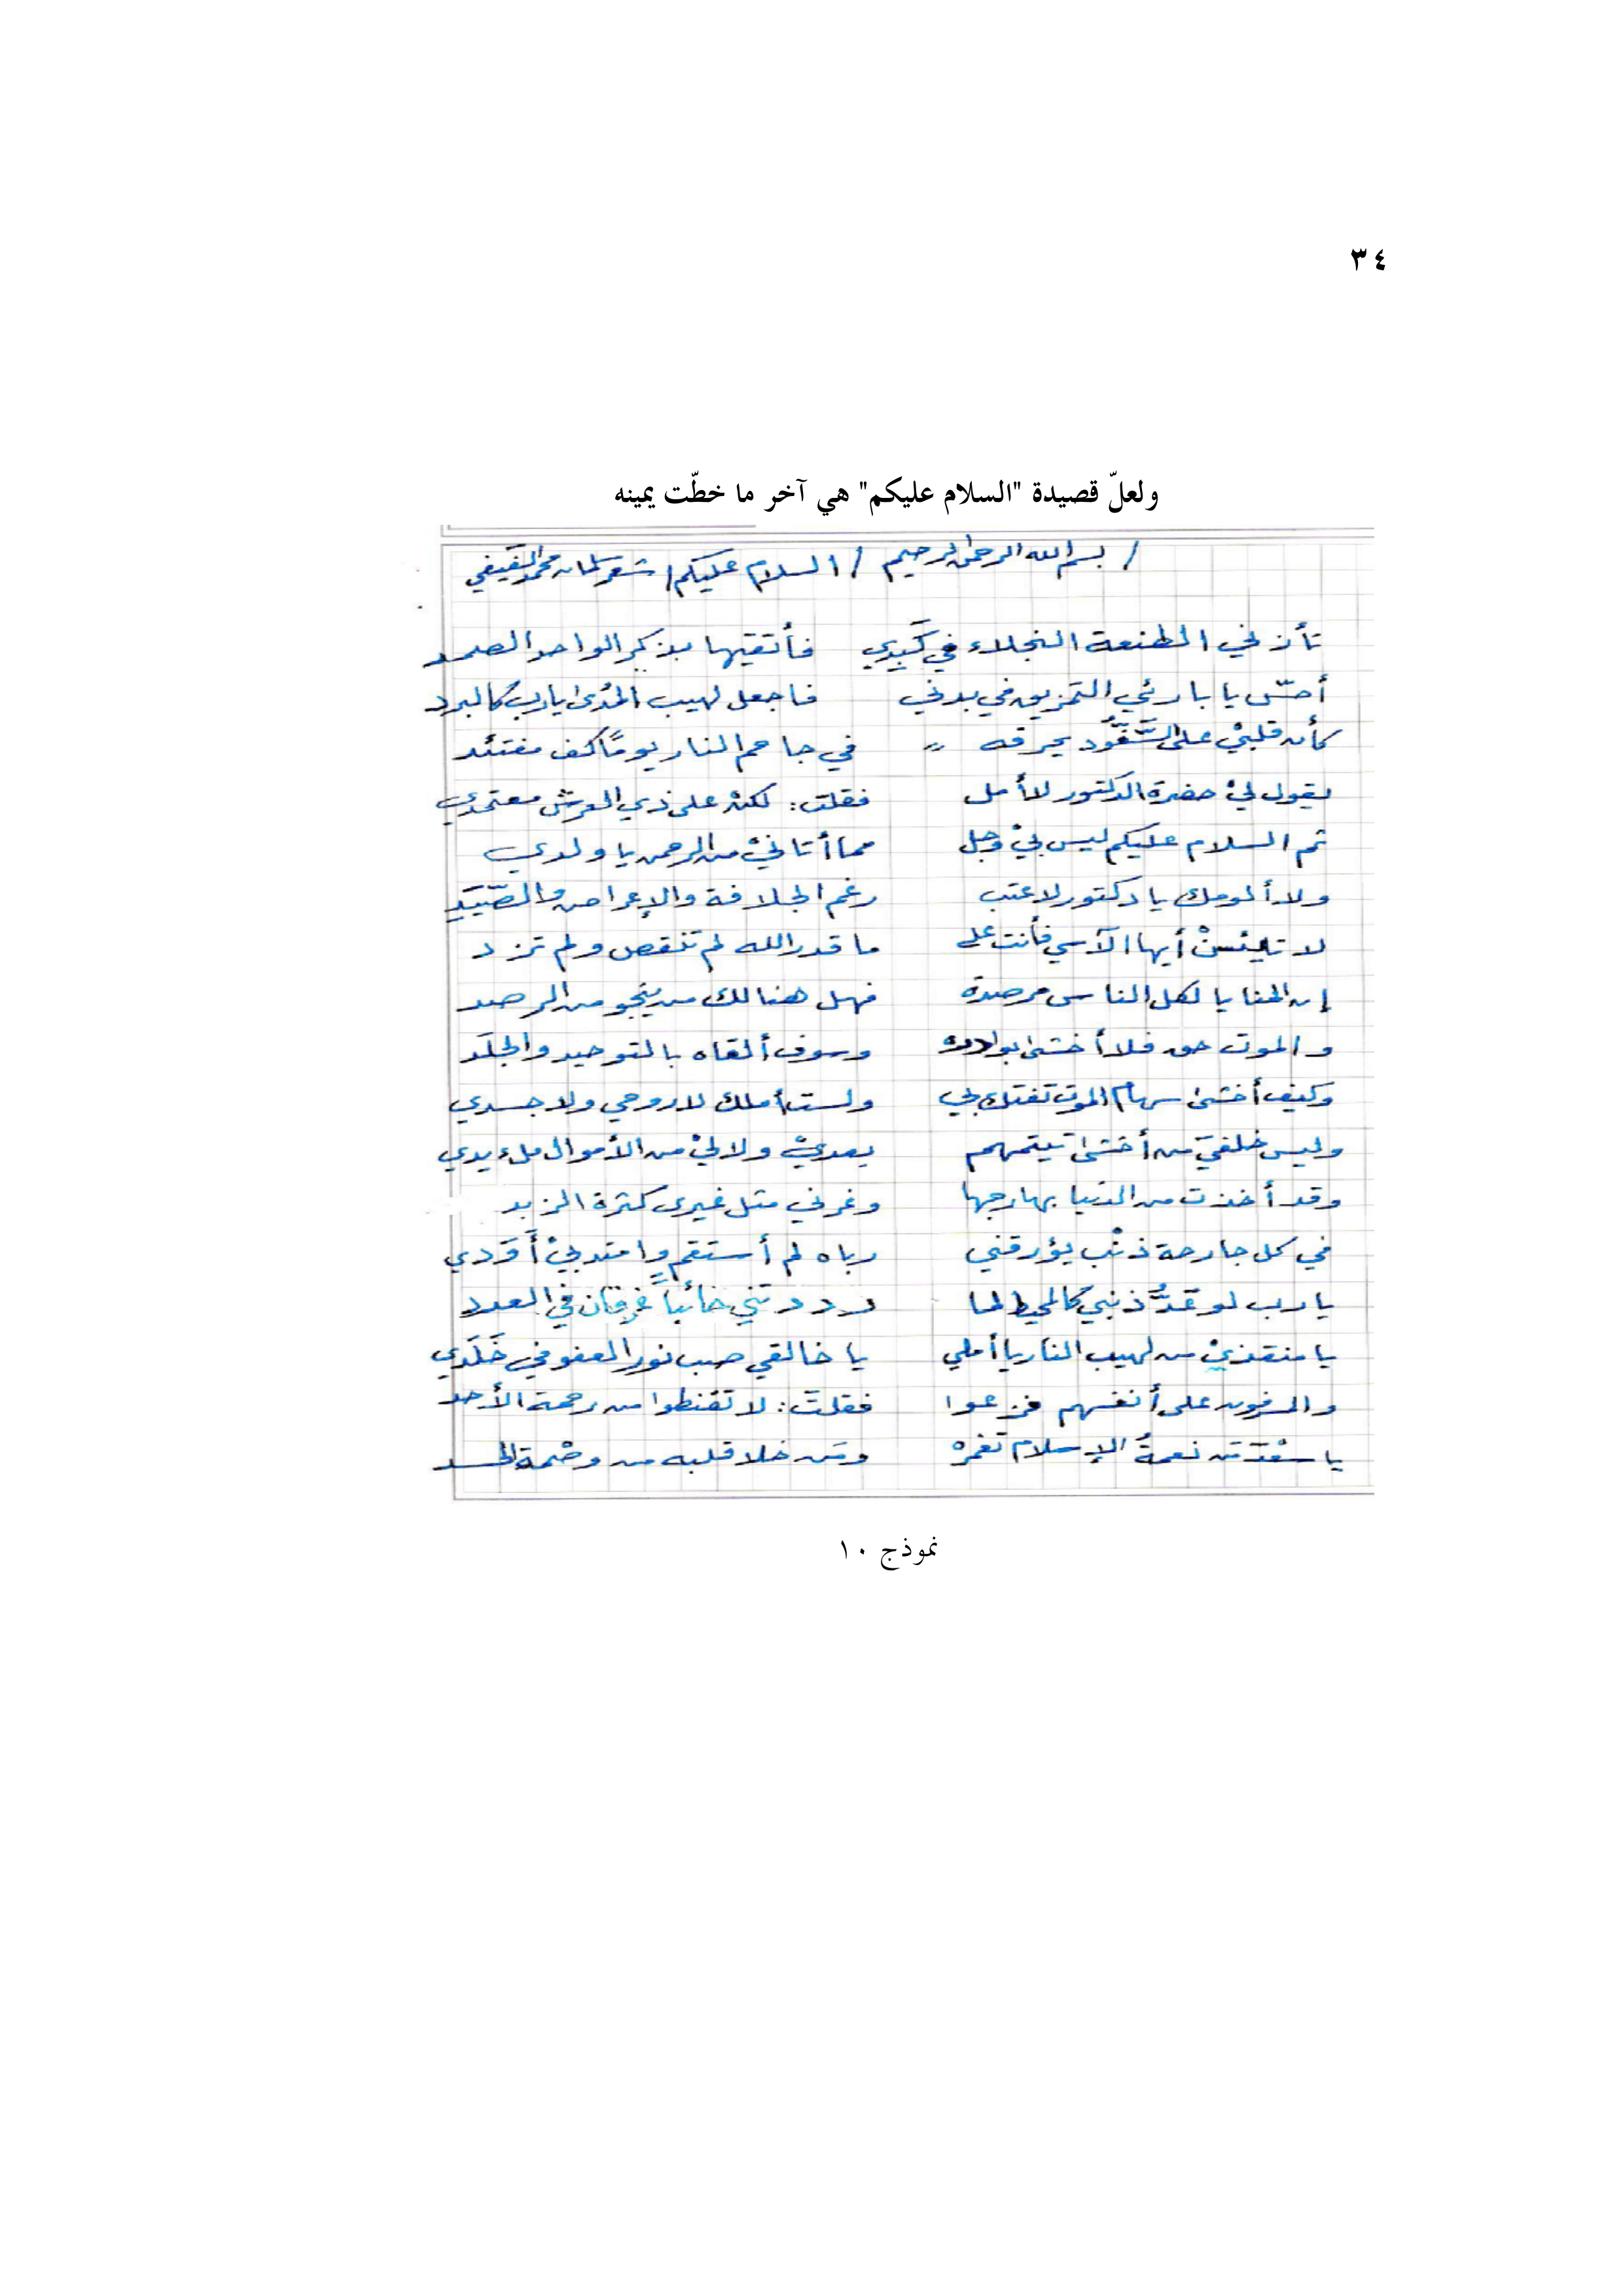 ٣٤
ولعلّ قصيدة "السلام عليكم" هي آخر ما خطّت يمينه
/ بسم الله الرحمن الرحيم / السلام عليكم / شعر سلمان محمد الفيفي
تأن في الطعنة النجلاء في كَبِدي فأتقيها بذكر الواحد الصمد
أحسّ يا بارئي التمزيق في بدني فاجعل لهيب المُدى يا رب كالبرد
كأن قلبيْ على السَّفُّود يحرقه في جاحم النار يومًا كف مفتئد
يقول ليْ حضرة الدكتور لا أمل فقلت: لكنْ على ذي العرش معتمدي
ثم السلام عليكم ليس بيْ وجل مما أتانيْ من الرحمن يا ولدي
ولا ألومك يا دكتور لا عتب رغم الجلافة والإعراض والصَّيَدِ
لا تيئسنْ أيها الآسي فأنت على ما قدر الله لم تنقص ولم تزد
إن المنايا لكل الناس مرصدة فهل هنالك من ينجو من الرصد
والموت حق فلا أخشى بوادره وسوف ألقاه بالتوحيد والجلَد
وكيف أخشى سهام الموت تفتك بي ولست أملك لا روحي ولا جسدي
وليس خلفيَ من أخشى تيتمهم بعديْ ولا ليْ من الأموال ملء يدي
وقد أخذت من الدنيا بهارجها وغرني مثل غيري كثرة الزبد
في كل جارحة ذنْب يؤرقني رباه لم أستقم وامتد بيْ أَوَدي
يا رب لو عَدُّ ذنبي كالمحيط لما رددتني خائباً غرقان في العدد
يا منقذيْ من لهيب النار يا أملي يا خالقي صب نور العفو في خَلَدي
والمسرفون على أنفسهم فزعوا فقلتَ: لا تقنطوا من رحمة الأحد
يا سعْدَ مَن نعمةُ الإسلام تغمرهْ ومَن خلا قلبه من وصْمة الحسد
نموذج ١٠